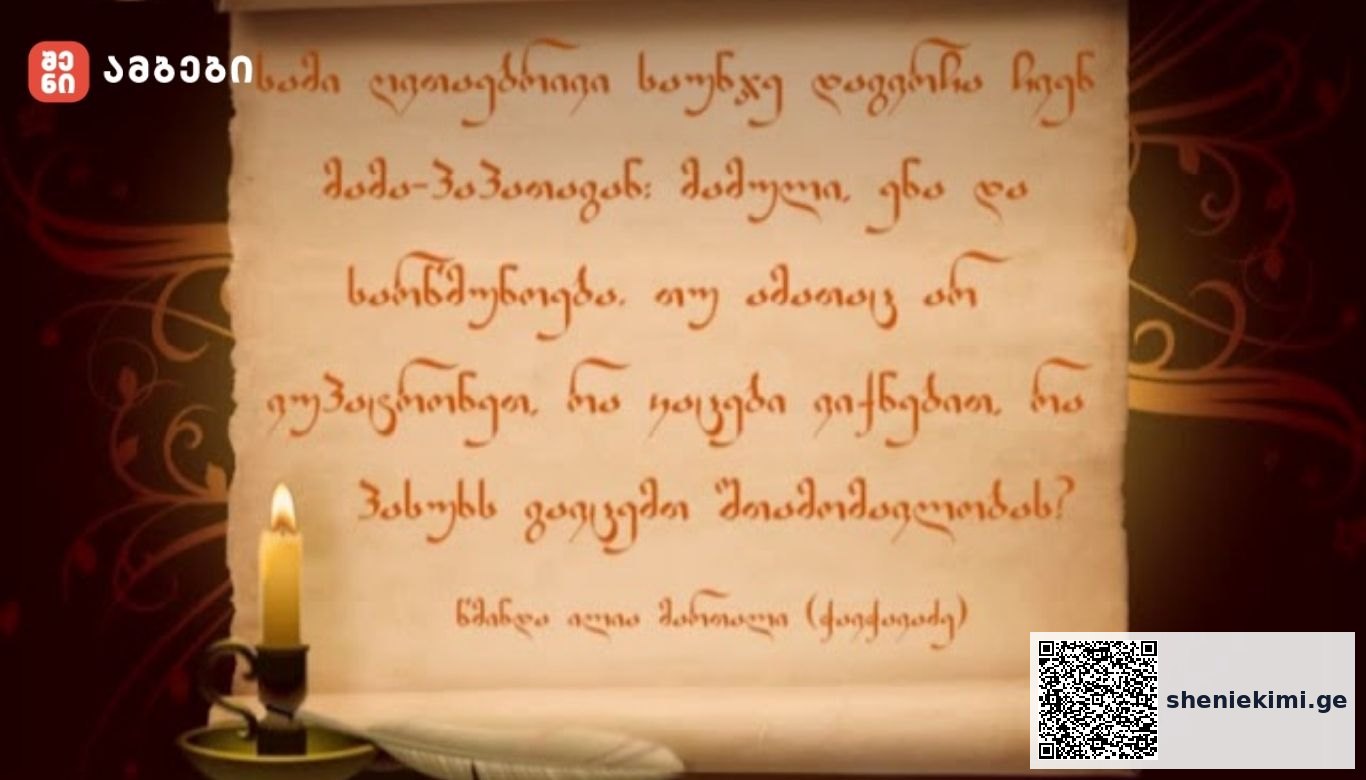 შენი ამბები
სამი ღვთაებრივი საუნჯე დაგვრჩა ჩვენ
მამა-პაპათაგან: მამული, ენა და
სარწმუნოება. თუ ამათაც არ
ვუპატრონეთ, რა კაცები ვიქნებით, რა
პასუხს გავცემთ შთამომავლობას?
წმინდა ილია მართალი (ჭავჭავაძე)
sheniekimi.ge